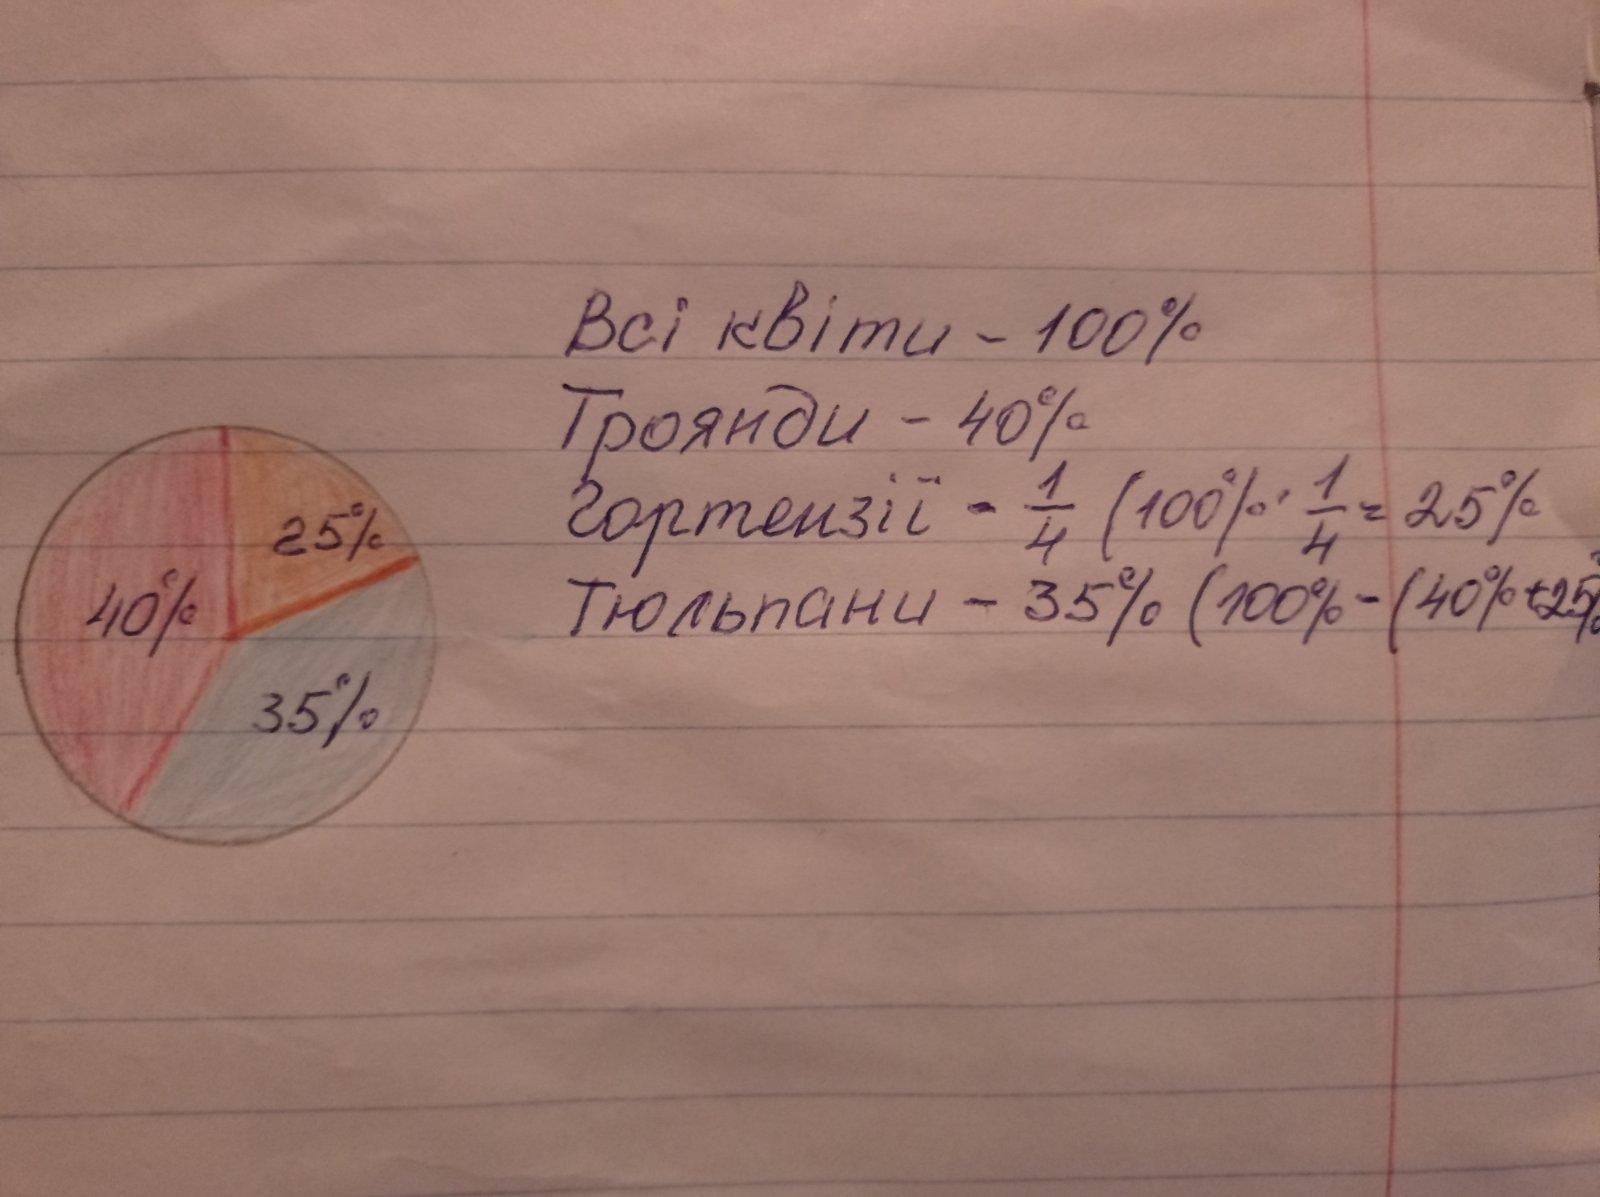 Всі квіти - 100%
Троянди - 40%
Гортензії - 1/4 (100% · 1/4 = 25%
Тюльпани - 35% (100% - (40% + 25%
25%
40%
35%